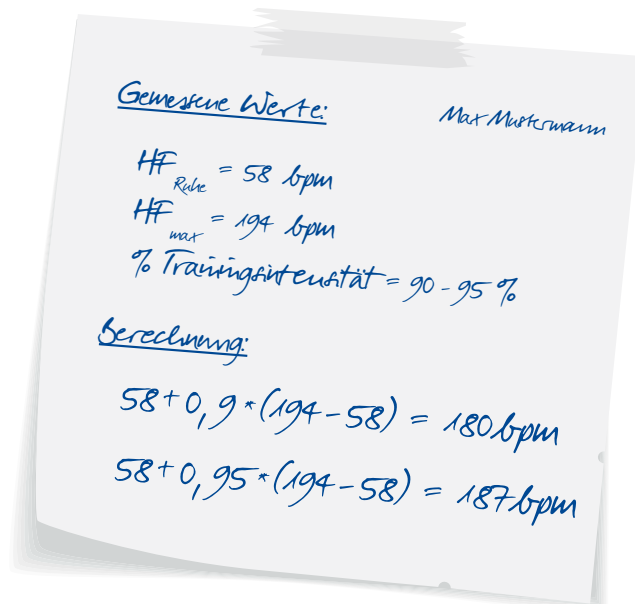 Gemessene Werte:
Max Mustermann
HF Ruhe = 58 bpm
HF max = 194 bpm
% Trainingsintensität = 90 - 95 %
Berechnung:
58 + 0,9 * (194 - 58) = 180 bpm
58 + 0,95 * (194 - 58) = 187 bpm